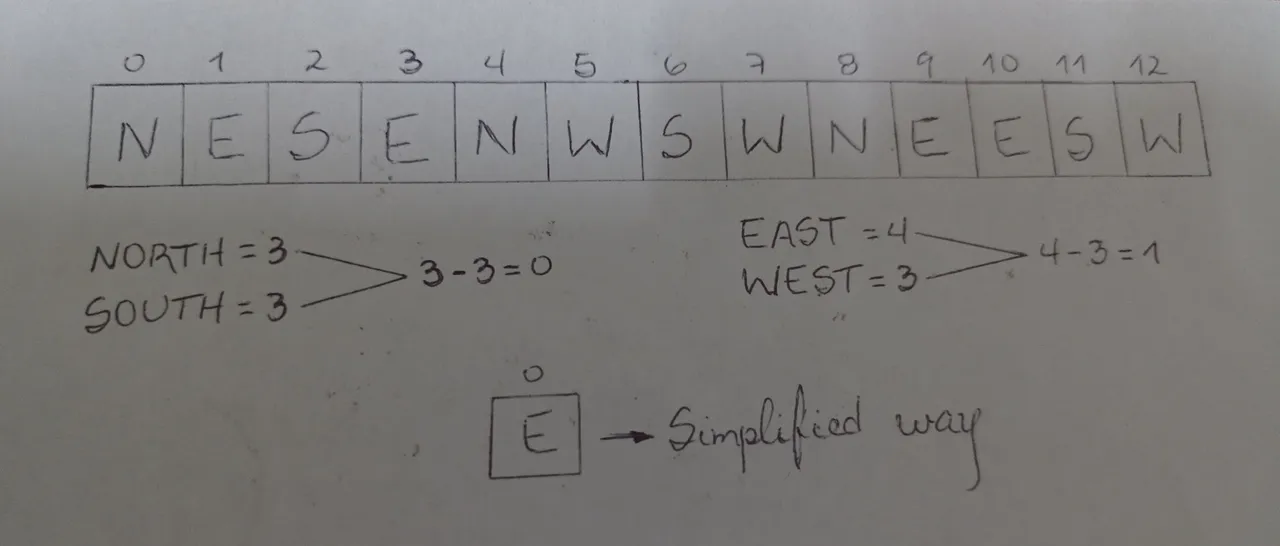 0 1 2 3 4 5 6 7 8 9 10 11 12
N E S E N W S W N E E S W
NORTH = 3
SOUTH = 3
3 - 3 = 0
EAST = 4
WEST = 3
4 - 3 = 1
0
E → Simplified way